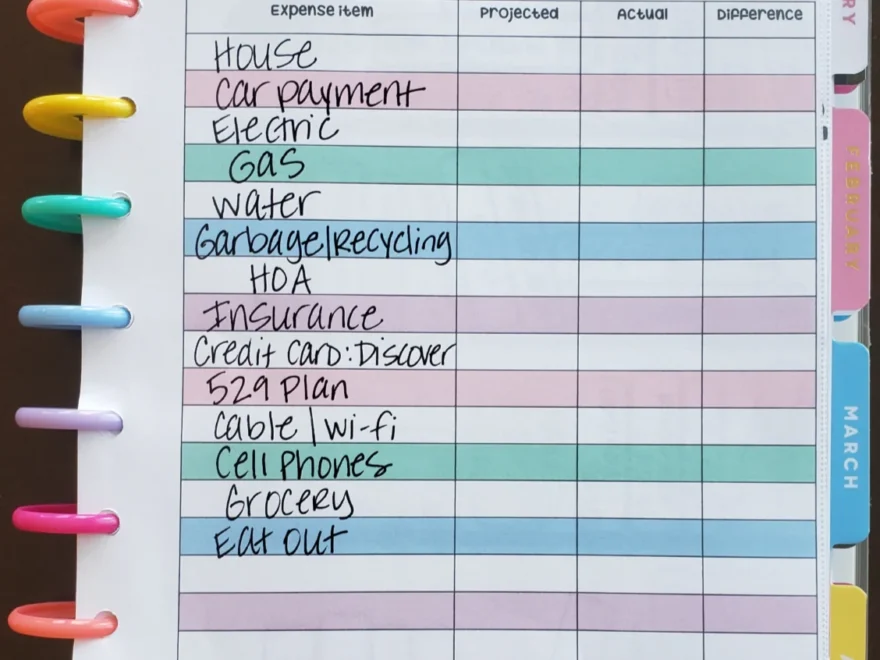 Expense item Projected Actual Difference
House
Car payment
Electric
Gas
Water
Garbage|Recycling
HOA
Insurance
Credit Card: Discover
529 Plan
Cable | Wi-fi
Cell Phones
Grocery
Eat Out
RY
FEBRUARY
MARCH